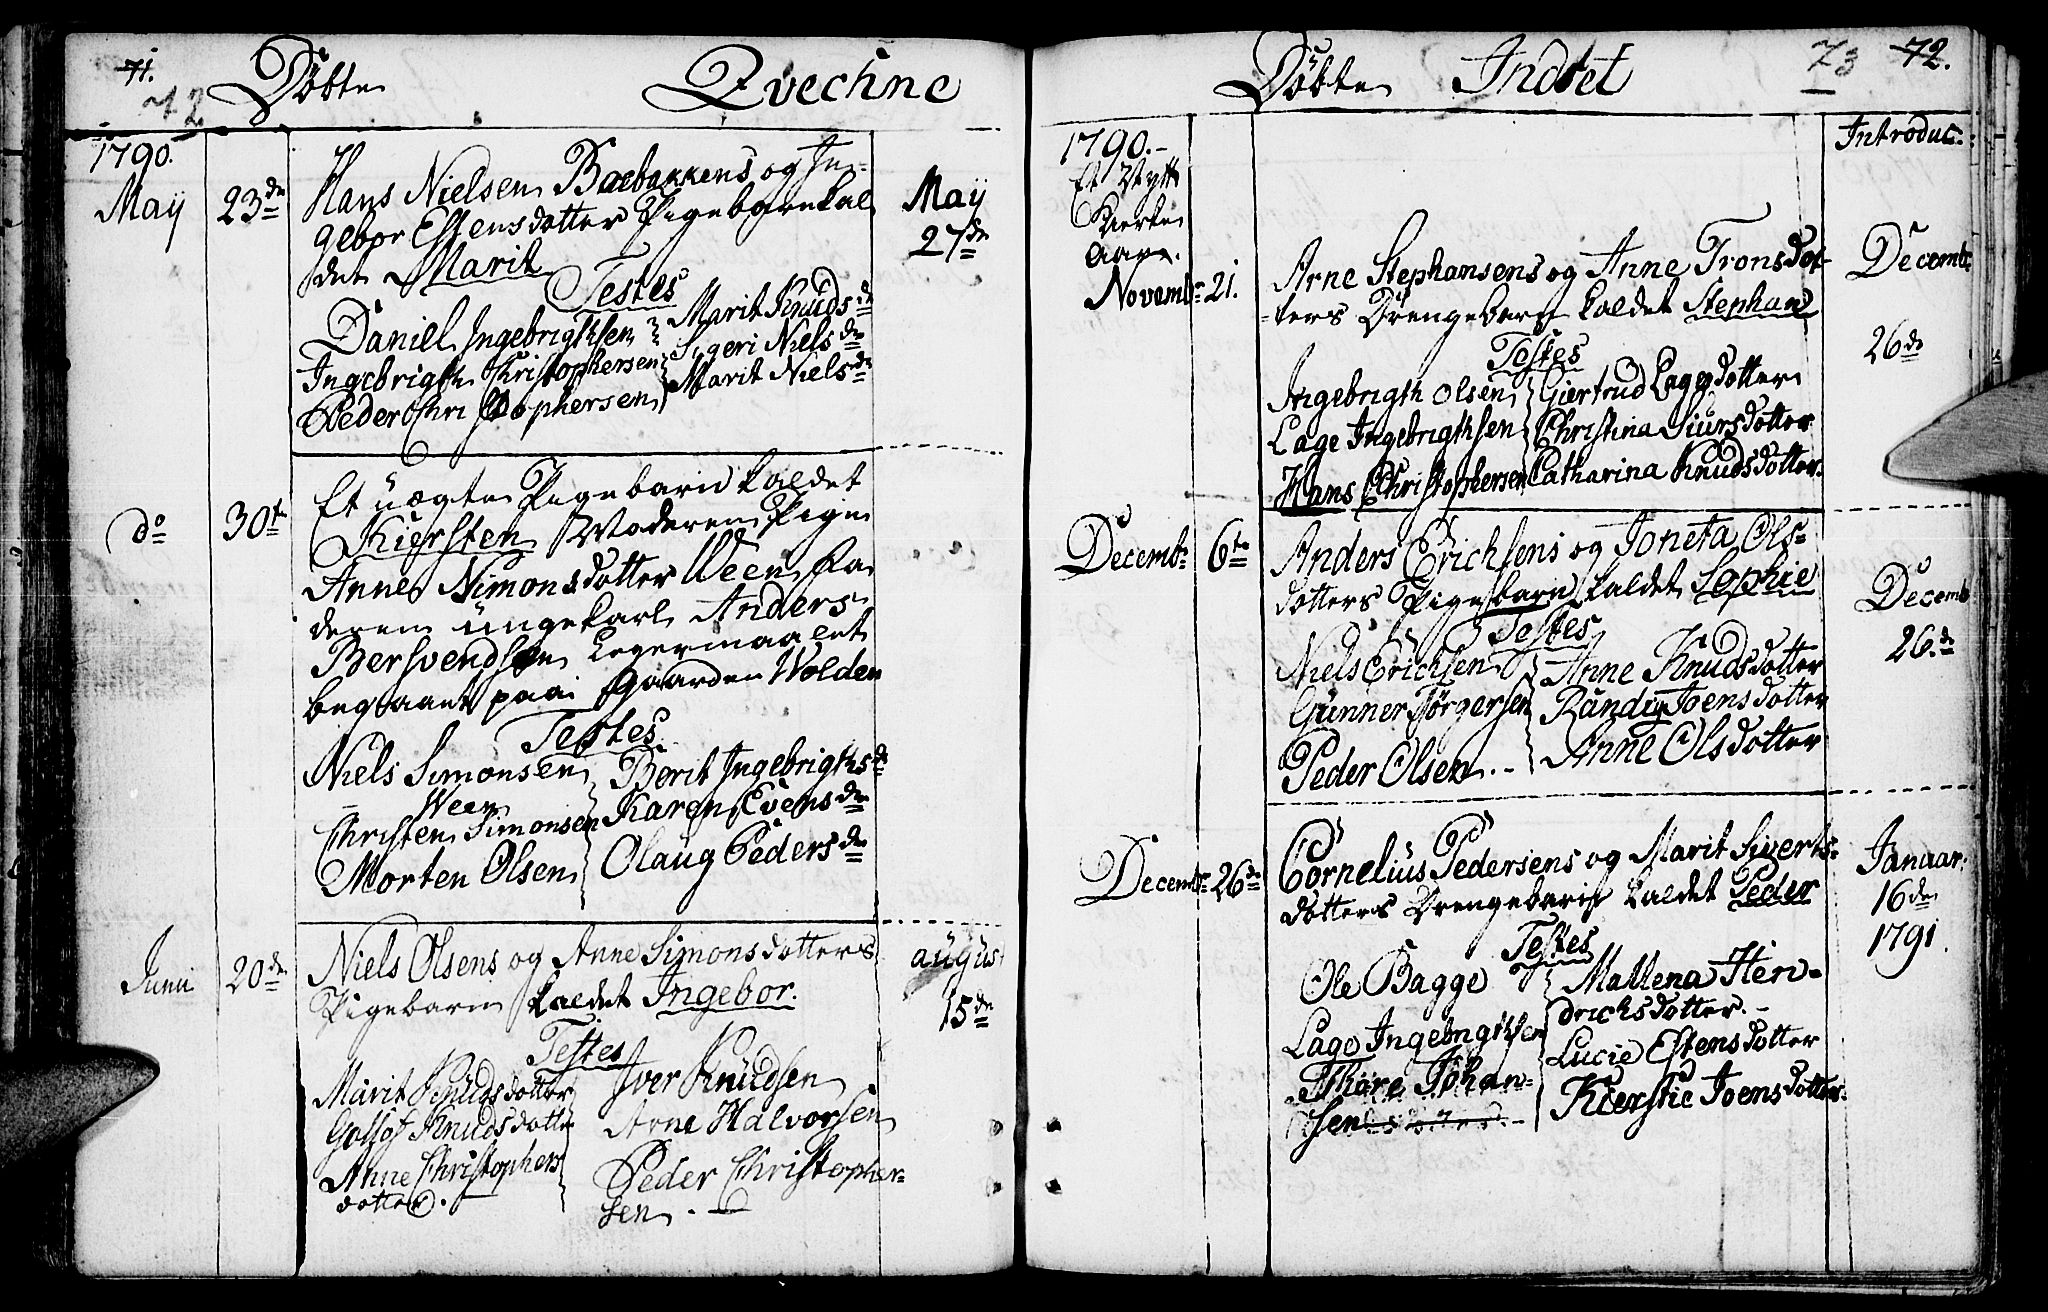 71.
72
Döbte Qvechne
1790.
Maij 23de
Hans Nielsen Baebakkens og In-
gebor Estensdotter Pigebarn kal
det Marit
Testes
Daniel Ingebrigthsen
Ingebrigth Christophersen
Peder Christophersen
Marit Knudsdr
Sigeri Nielsdr
Marit Nielsdr
Maij
27de
do 30te
Et uægte Pigebarn kaldet
Kiersten Moderen Pigen
Anne Simonsdotter Ween Fa
deren ungekarl Anders
Bersvendsen Legermaalet
begaaet paa Gaarden Wolden
Testes
Niels Simonsen
Ween
Christen Simonsen
Morten Olsen
Berit Ingebrigthsdr
Karen Evensdr
Olaug Pedersdr
Juni 20de
Niels Olsens og Anne Simonsdotters
Pigebarn kaldet Ingebor.
Testes
Marit Knudsdotter
Golløf Knudsdotter
Anne Christophers
dotter.
Iver Knudsen
Arne Halvorsen
Peder Christopher-
sen.
august
15de
73 72.
Döbte Indset
Introduc:
1790.
Et Nytt
Kierke
Aar.
Novembr 21.
Arne Stephansens og Anne Tronsdot-
ters Drengebarn kaldet Stephan
Testes
Ingebrigth Olsen
Lage Ingebrigthsen
Hans Christophersen
Giertrud Lagesdotter
Christina Siursdotter
Catharina Knudsdotter.
Decembr
26de
Decembr 6te
Anders Erichsens og Joneta Ols-
dotters Pigebarn kaldet Sophie
Testes
Niels Erichsen
Gunner Jørgersen
Peder Olsen.
Anne Knudsdotter
Randi Joensdotter
Anne Olsdotter
Decemb
26.de
Decembr 26de
Cornelius Pedersens og Marit Siverts-
dotters Drengebarn kaldet Peder
Testes
Ole Bagge
Lage Ingebrigthsen
Thore Johan-
sen
Mallena Hen-
drichsdotter.
Lucie Estensdotter
Kierstie Joensdotter.
Januar:
16de
1791.